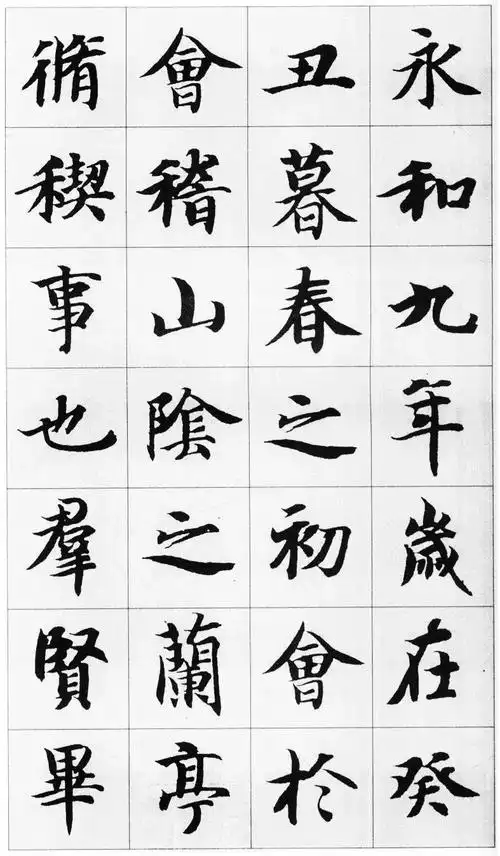 永和九年歲在癸
丑暮春之初會於
會稽山陰之蘭亭
脩稧事也羣賢畢